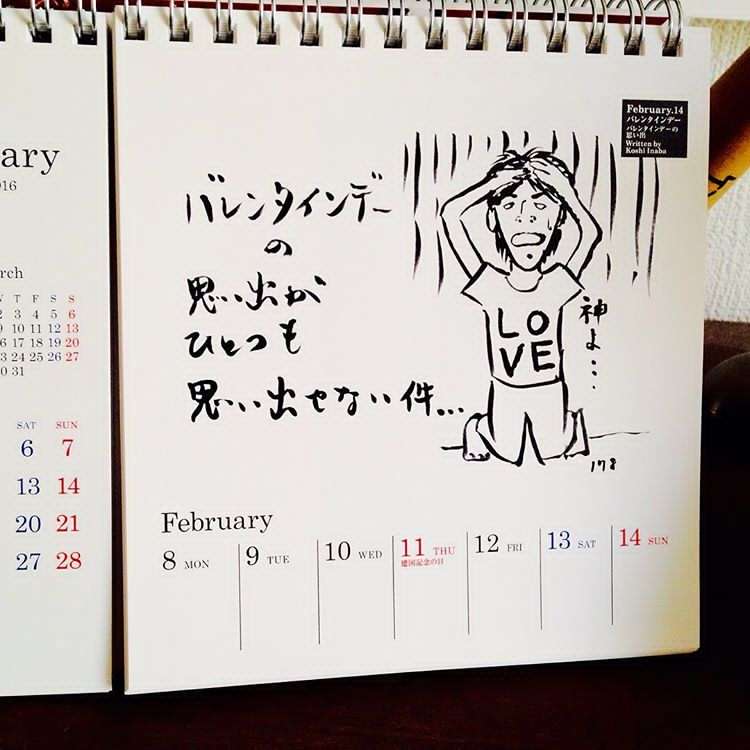 ary
016
rch
W T F S S
2 3 4 5 6
9 10 11 12 13
16 17 18 19 20
23 24 25 26 27
30 31
SAT SUN
6 7
13 14
20 21
27 28
February.14
バレンタインデー
バレンタインデーの
思い出
Written by
Koshi Inaba
バレンタインデー
の
思い出が
ひとつも
思い出せない件...
LO
VE
神よ...
178
February
8 MON 9 TUE 10 WED 11 THU 12 FRI 13 SAT 14 SUN
建国記念の日